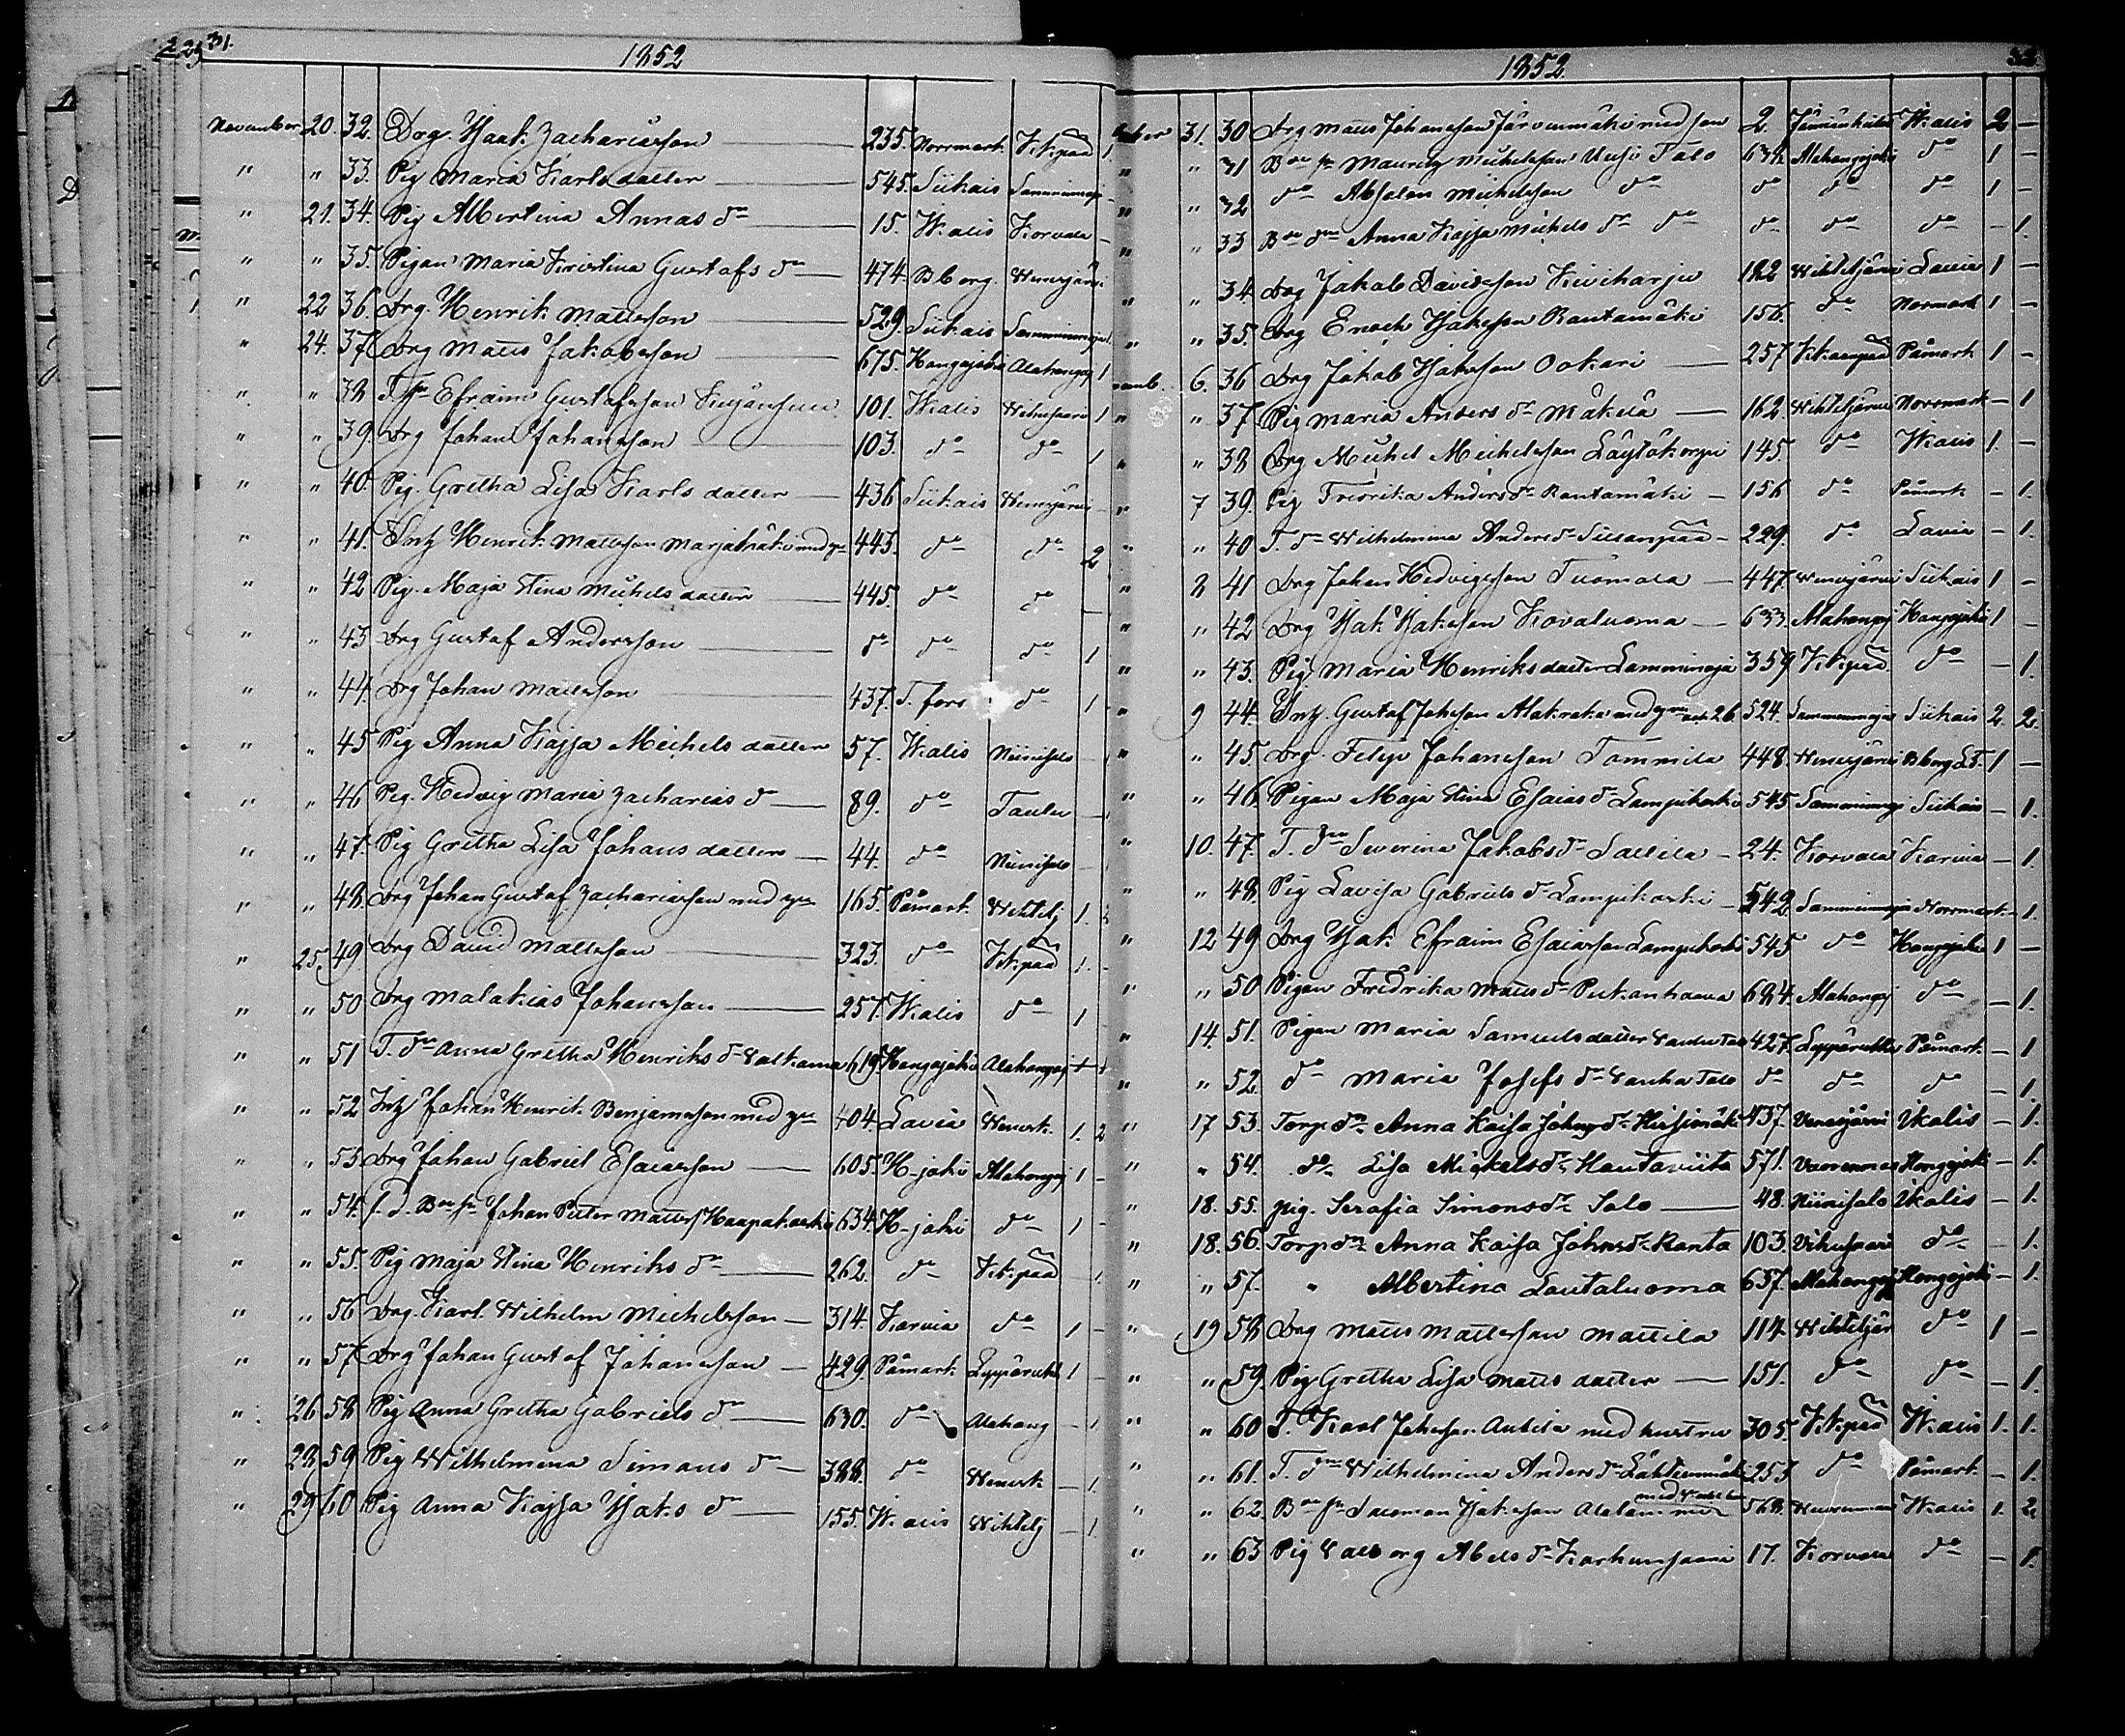 31.
1852
November 20. 32. Drg. Isaak Zachariasson 235. Norrmark K.K:pää 1.
" " 33. Pig Maria Karls dotter 545. Siikais Samminmaja -
" 21. 34. Pig Albertina Annas dr 15. Ikalis Korvala -
" " 35. Pigan Maria Kristina Gustafs dr 474. B.borg. Wenesjärvi
" 22 36. Drg. Henrik Mattsson 529. Siikais Samminmaja 1.
" 24. 37. Drg Matts Jakobsson 675. Hongojoki Alahongoj 1
" " 38 T. sn Efraim Gustafsson 101. Ikalis Wihusaari 1
" " 39. Drg Johan Johansson 103. do do 1
" " 40. Pig. Gretha Lisa Karls dotter 436 Siikais Wenesjärvi -
" " 41. Inh Henrik Mattsson med 443. do do 2
" " 42 Pig. Maja Stina Michels dotter 445. do do -
" " 43. Drg Gustaf Andersson do do do 1
" " 44. Drg Johan Mattsson 437. T.fors do 1
" " 45 Pig Anna Kajsa Michels dotter 57. Ikalis Niinisalo
" " 46 Pig. Hedvig Maria Zacharias dr 89. do
" " 47. Pig Gretha Lisa Johans dotter 44. do Niinisalo
" " 48. Drg Johan Gustaf Zachariasson med 165. Påmark Wihtelj 1. 2
" 25. 49. Drg David Mattsson 323. do K.K:pää 1. -
" " 50 Drg Malakias Johansson 257. Ikalis do 1
" " 51 T. dr Anna Gretha Henriks dr 619. Hongojoki Alahongoj
" " 52 Inh Johan Henrik Benjamsson med 404. Lavia 1. 2
" " 53 Drg Johan Gabriel Esaiasson 605. H-joki Alahongoj 1 -
" " 54. Johan Petter Matts Haapakoski 634. H-joki do 1 -
" " 55. Pig Maja Stina Henriks dr 262. do K.K:pää 1.
" " 56 Drg. Karl Wilhelm Michelsson 314. Karvia do 1 -
" " 57. Drg Johan Gustaf Johansson 429. Påmark Leppäruhka 1 -
" 26 58 Pig Anna Gretha Gabriels dr 630. do Alahong - 1
" 28 59 Pig Wilhelmina Simons dr 388. do - 1.
" 29 60 Pig Anna Kajsa Isaks dr 155. Ikalis Wihtelj - 1.
1852.
31. 30 Drg Matts Johansson Järvenmäki med son 2. Jämiänkeidas Ikalis 2 -
" " 31 Bde sn Mauritz Michelsson Uusi Talo 638 Alahongojoki do 1 -
" " 32 do Abselon Michelsson do do do do 1 -
" " 33 Bde dr Anna Kajsa Michels dr do do do do - 1.
" " 34 Drg Jakob Davidsson Kiviharju 182 Wihteljärvi Lavia 1 -
" " 35. Drg Enoch Isaksson Rantamäki 156. do Normark 1 -
" 6. 36 Drg Jakob Isaksson Ookari 257 K.Kanpää Påmark 1 -
" " 37 Pig Maria Anders dr Mäkelä 162 Wihteljärvi Norrmark - 1
" " 38 Drg Michel Michelsson Löytökorpi 145. do Ikalis 1. -
" 7 39. Pig Fredrika Anders dr Rantamäki 156 do Påmark - 1.
" " 40 T. dr Wilhelmina Anders dr Sillanpää 229. do Lavia - 1.
" 8 41 Drg Johan Hedvigsson Tuomala 447. Wenesjärvi Siikais 1 -
" " 42 Drg Isak Isaksson Kovaluoma 633. Alahongoj Hongojoki 1 -
" " 43. Pig Maria Henriksdotter Lamminoja 359 K.K:pää do - 1.
" 9 44. Inh. Gustaf Johsson Alakoski med 26. 524. Samminmaja Siikais 2. 2.
" " 45. Drg. Felix Johansson Tommila 448. Wenesjärvi B.borg Lf. 1 -
" " 46. Pigan Maja Stina Esaias dr Lampikoski 545 Samminmaj Siikais - 1.
" 10. 47. T. dr Severina Jakobs dr Sallila 24. Korvala Karvia - 1.
" " 48. Pig Lovisa Gabriels dr Lampikoski 542 Samminmaja Norrmark - 1.
" 12 49 Drg Isak Efraim Esaiasson Lampikoski 545 do Hongojoki 1 -
" " 50 Pigan Fredrika Matts dr 684. Alahongoj do - 1.
" 14. 51. Pigan Maria Samuelsdotter 427. Leppäruhka Påmark - 1
" " 52. do Maria Josefs dr Vanha Talo do do do - 1.
" 17 53. Torp. dr. Anna Kaisa Johns dr. Hirsimäki 437. Venesjärvi Ikalis - 1.
" " 54. do. Lisa Mickels dr. Hautaviita 571. Hongojoki - 1.
" 18. 55. pig. Serafia Simons dr. Salo 48. Niinisalo Ikalis - 1.
" 18. 56. Torp dr. Anna Kaisa Johns dr. Ranta 103. Vihusaari do - 1.
" " 57. " Albertina Lautaluoma 657. Alahongoj Hongojoki - 1.
" 19 58 Drg Matts Mattsson Mattila 114 Wihteljär do 1 -
" " 59. Pig Gretha Lisa Matts dotter 151. do do - 1.
" " 60 T. Karl Johsson Antila med hustru 305. K.K:pää Ikalis 1. 1.
" " 61. T. dr Wilhelmina Anders dr 253 do Påmark - 1.
" " 62. Bde sn Salomon Isaksson Alatammi 568. Ikalis 1. 2
" " 63 Pig Valborg Abels dr Karhunsaari 17. Korvala do - 1.